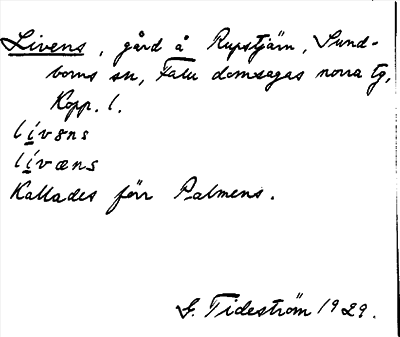 Livens, gård å Rupstjärn, Sund-
borns sn, Falu domsagas norra tg,
Kopp. l.
lívɘns
lívæns
Kallades förr Palmens.
G. Tideström 1929.